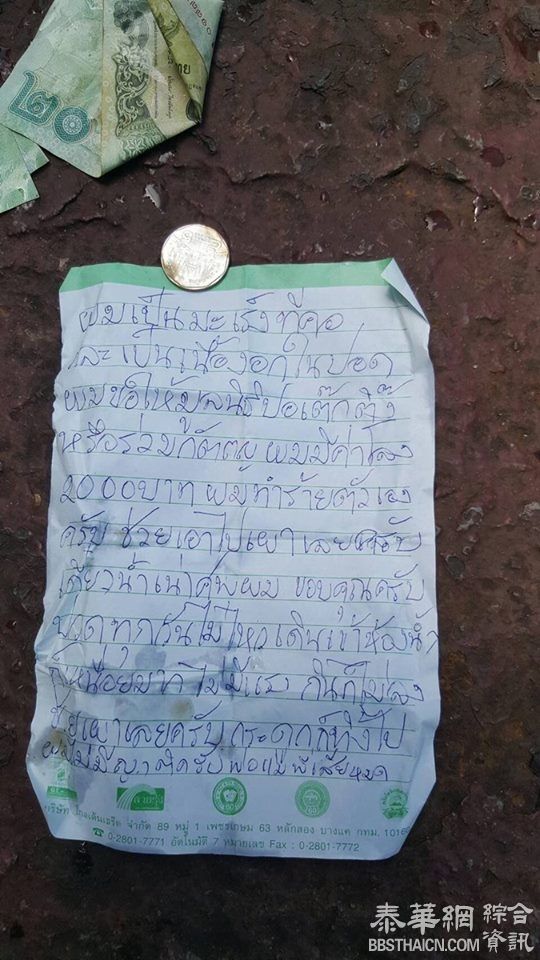 ๒๐
ไทย
ผมเป็นมะเร็งที่คอ
และเป็นเนื้องอกในปอด
ผมขอให้มูลนิธิปอเต๊กตึ๊ง
หรือร่วมกตัญญู ผมมีค่าโลง
2000บาท ผมทำร้ายตัวเอง
ครับ ช่วยเอาไปเผาเลยครับ
เดียวน้ำเน่าศพผม ขอบคุณครับ
ปวดทุกวันไม่ไหวเดินเข้าห้องน้ำ
ก็เหนื่อยมาก ไม่มีแรง กินก็ไม่ลง
ช่วยเผาเลยครับ กระดูกก็ทิ้งไป
ผมไม่มีญาติครับ พ่อแม่พี่เสียหมด
บริษัท จำกัด 89 หมู่ 1 เพชรเกษม 63 หลักสอง บางแค กทม. 10160
☎ 0-2801-7771 อัตโนมัติ 7 หมายเลข Fax : 0-2801-7772
泰華網 綜合資訊
BBSTHAICN.COM